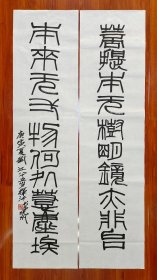 菩提本无樹明鏡亦非台
本來无一物何処惹塵埃
庚寅夏